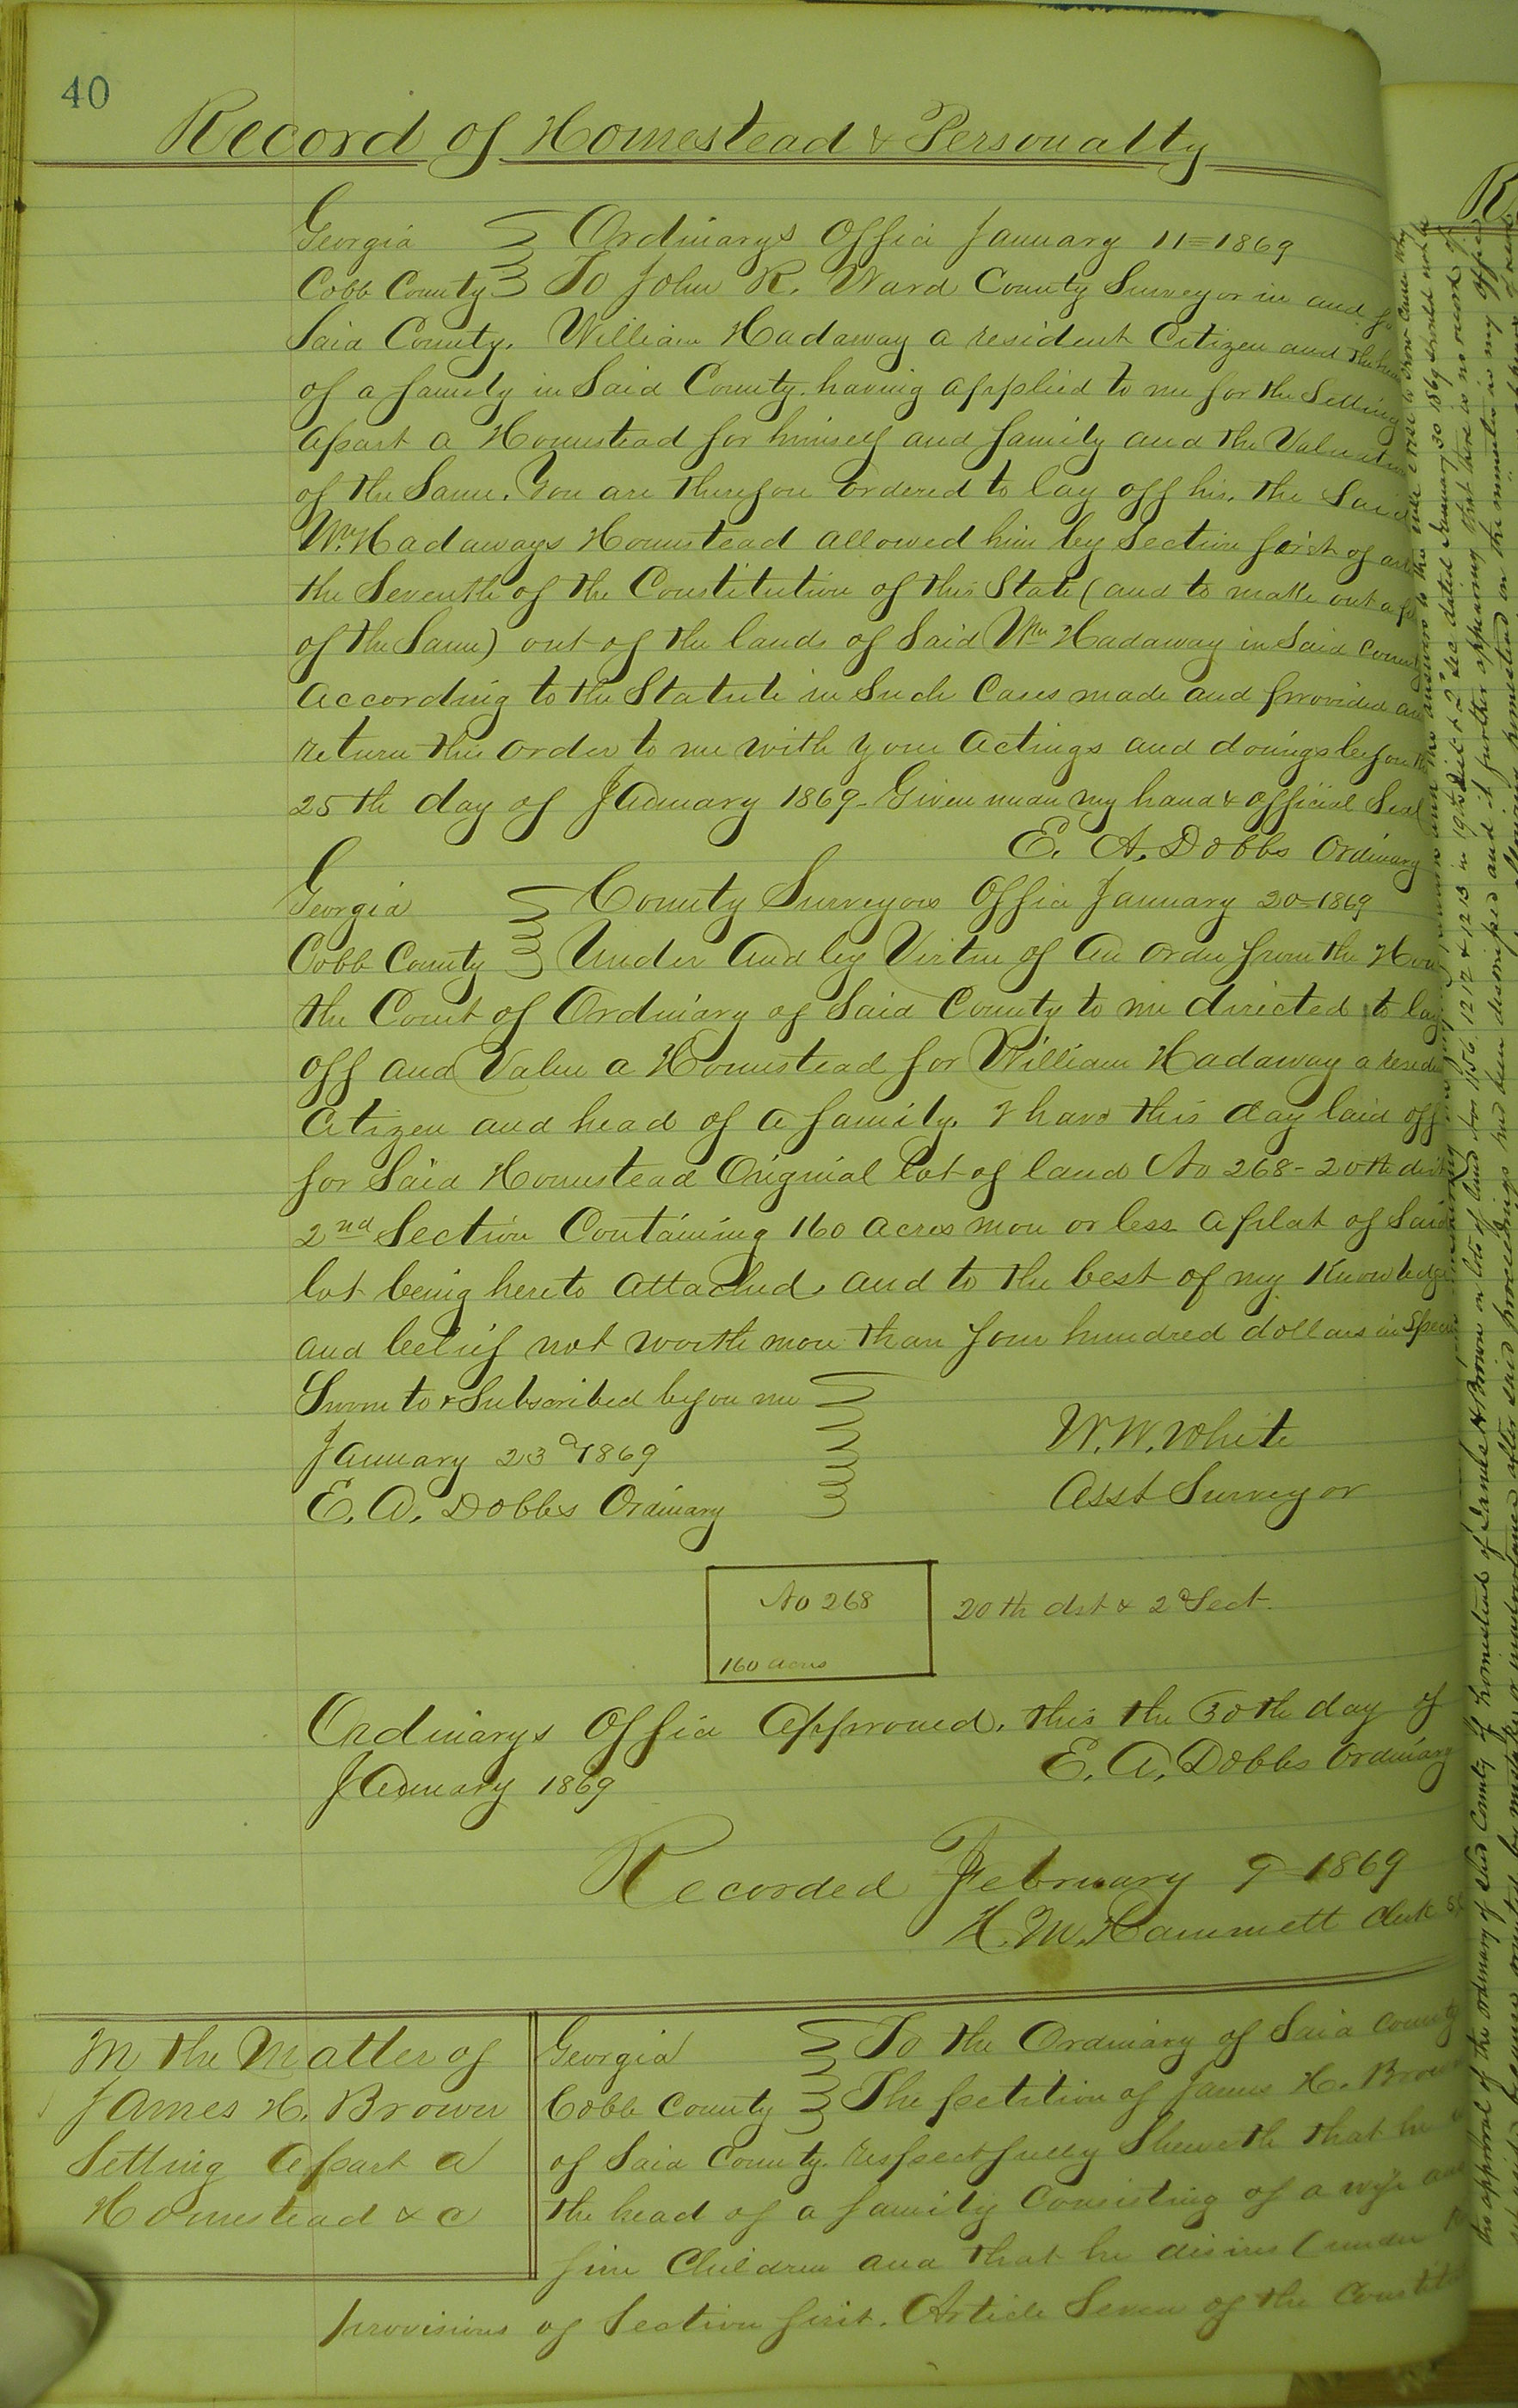 40
Record of Homestead & Personalty
Georgia Ordinarys Office January 11=1869
Cobb County To John R. Ward County Surveyor in and
Said County. William Hadaway a resident Citizen and the
of a family in Said County. having applied to me for the Setting
apart a Homestead for himself and family and the Valuation
of the Same. You are therefore ordered to lay off his, the Said
Wm Hadaways Homestead allowed him by Section first of
the Seventh of the Constitution of this State (and to make out a
of the Same) out of the lands of Said Wm Hadaway in Said County
according to the Statute in Such Cases made and provided
return this order to me with your actings and doings before the
25th day of January 1869 - Given under my hand & official Seal
E. A. Dobbs Ordinary
Georgia County Surveyors Office January 20=1869
Cobb County Under and by Virtue of an order from the Hon
the Court of Ordinary of Said County to me directed to lay
off and Value a Homestead for William Hadaway a
Citizen and head of a family. I have this day laid off
for Said Homestead Original lot of land No 268 - 20th dist
2nd Section Containing 160 acres more or less a plat of Said
lot being hereto attached, and to the best of my Knowledge
and belief not worth more than four hundred dollars in Specie
Sworn to & Subscribed before me
January 23d 1869
E. A. Dobbs Ordinary
W. W. White
Asst Surveyor
No 268
160 acres
20th dst & 2d Sect.
Ordinarys Office Approved, this the 30th day of
January 1869 E. A. Dobbs Ordinary
Recorded February 9=1869
H. M. Hammett Clerk
In the Matter of
James H. Brown
Setting Apart a
Homestead & c
Georgia To the Ordinary of Said County
Cobb County The petition of James H. Brown
of Said County. respectfully Sheweth that he
the head of a family Consisting of a wife and
five Children and that he desires (under
provisions of Section first. Article Seven of the